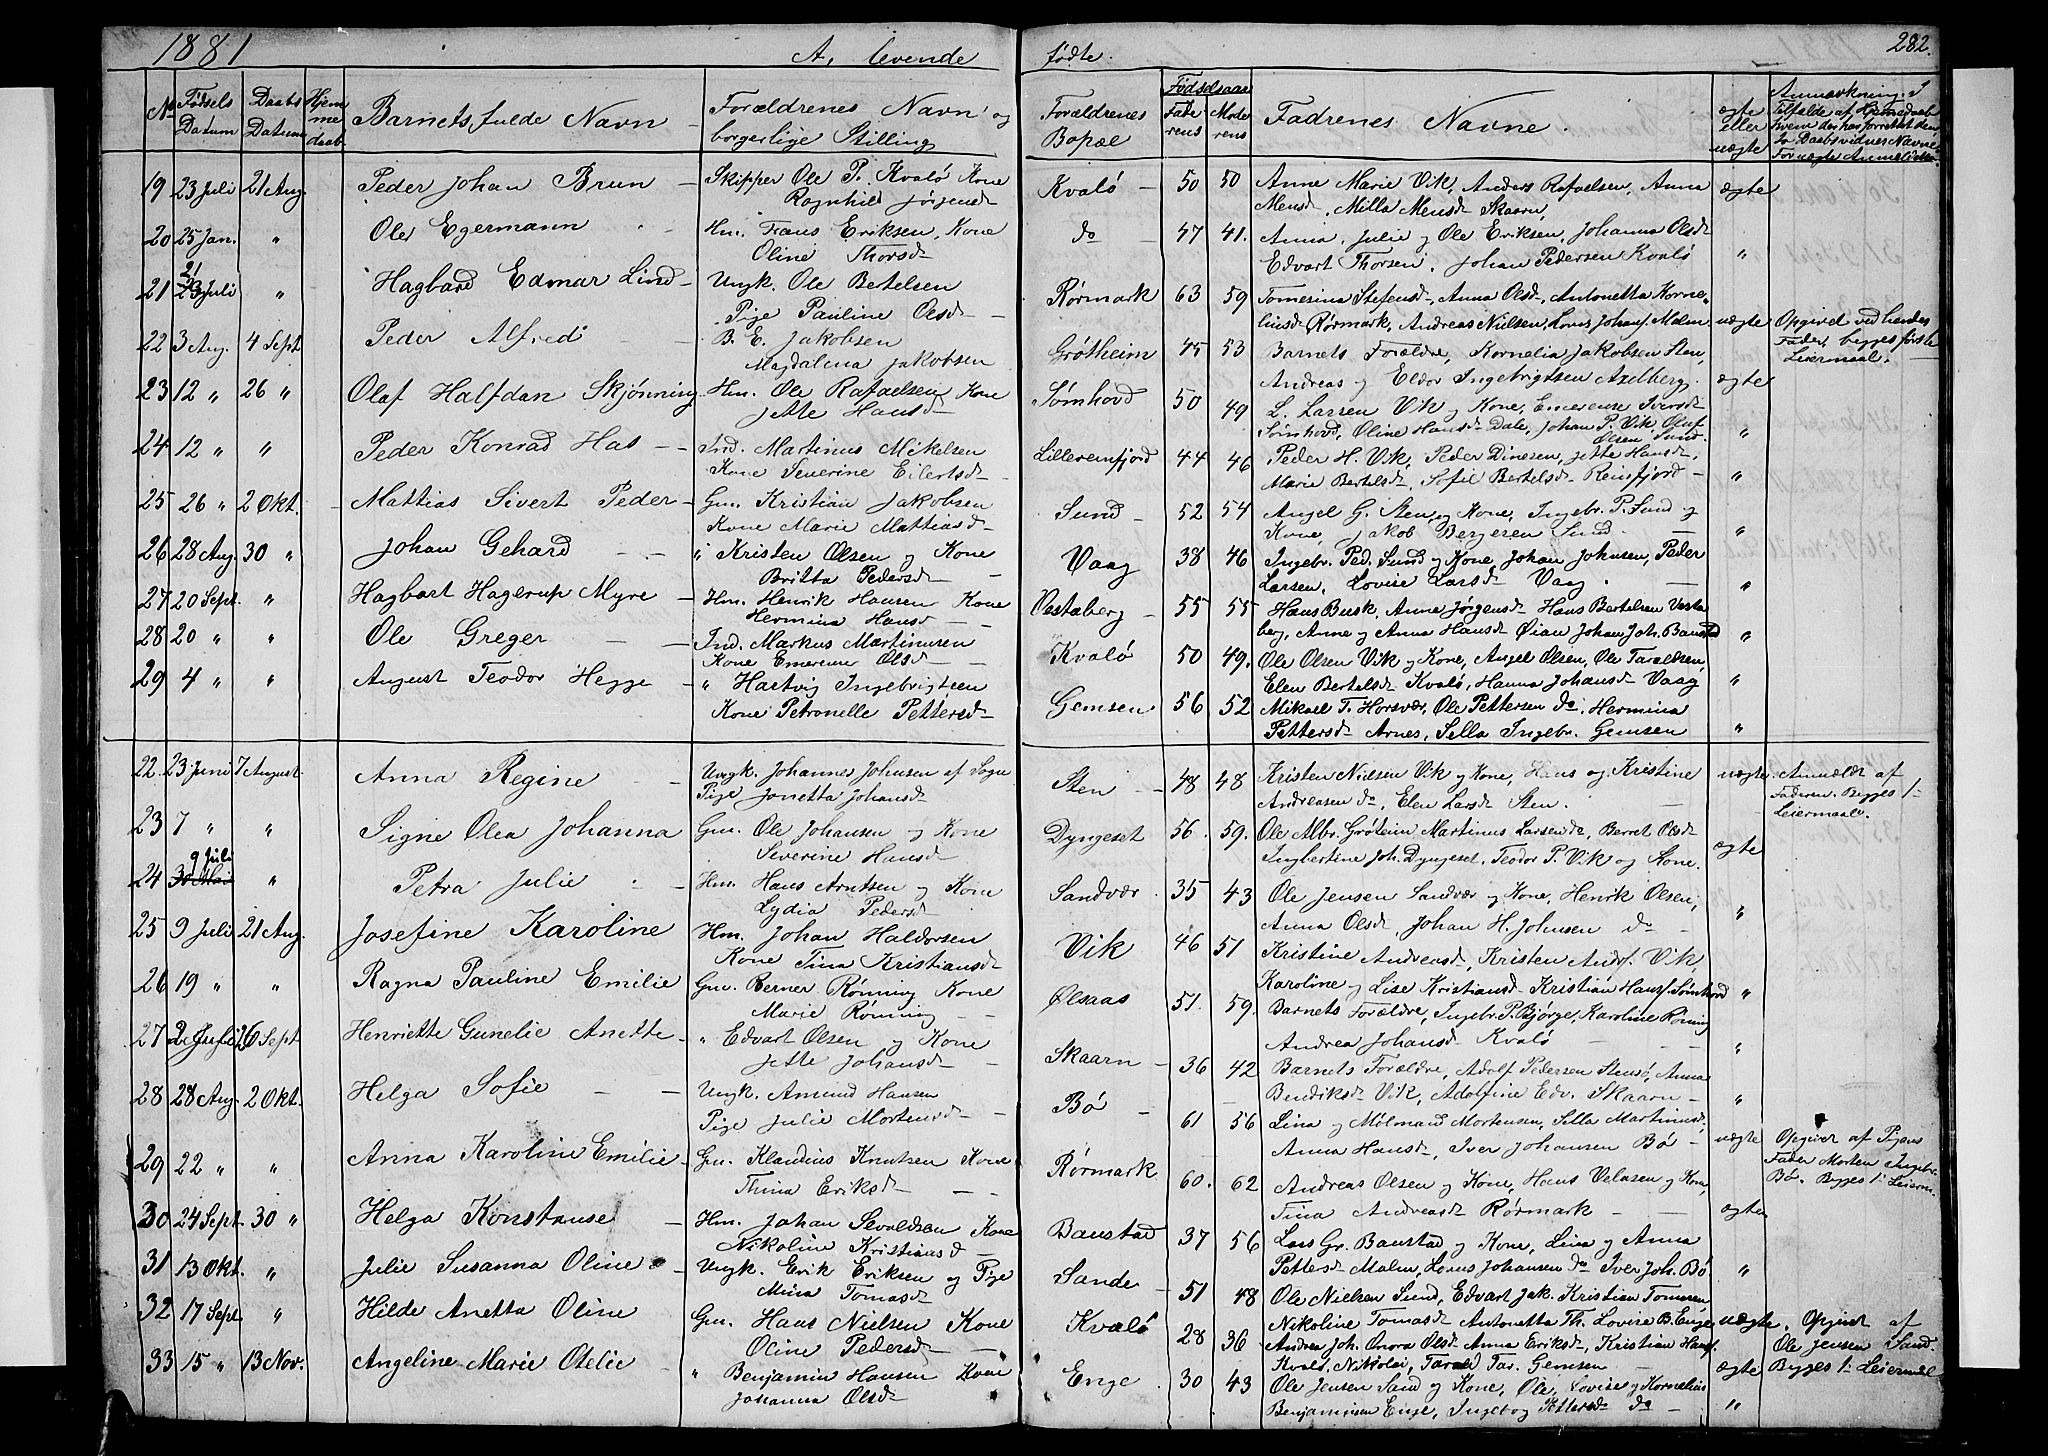 1881
A, levende
fødte.
282.
No
Fødsels Datum
Daabs Datum
Hjemmedaab
Barnets fulde Navn
Forældrenes Navn og borgerlige Stilling
Forældrenes Bopæl
Fødselsaar
Faderens
Moderens
Fadrenes Navne.
ægte eller uægte
Anmærkning. I Tilfælde af Hjemmedaab hvem der har forrettet den,
19 23 Juli 21 Aug. Peder Johan Brun Skipper Ole P. Kvalø Kone
Ragnhild Jørgensd
Kvalø 50 50 Anne Marie Vik, Anders Rafaelsen, Anna ægte
Mensd. Milla Mensd Skaarn,
20 25 Jan. " Oler Egermann Hm. Frans Eriksen, Kone
Oline Thorsd
do 47 41. Anna, Julie og Ole Eriksen, Johanna Olsd
Edvart Thorsen, Johan Pedersen Kvalø "
21 23 Juli " Hagbard Edmar Lind Ungk. Ole Betelsen
Pige Pauline Olsd
Rørmark 63 59 Tomesina Stefensd, Anna Olsd, Antonetta Korneliusd Rørmark, Andreas Nielsen, Lovis Johans. Malm uægte Opgivet ved hendes Fader, begges første Leiermaal.
22 3 Aug. 4 Sept Peder Alfred B. E. Jakobsen
Magdalena Jakobsen
Grøtheim 45 53 Barnets Forældre, Kornelia Jakobsen Sten,
Andreas og Eldor Ingebrigtsen Axelberg. ægte
23 12 " 26 " Olaf Halfdan Skjønning Hm. Ole Rafaelsen Kone
Jette Hansd
Sømhovd 50 49 L. Larsen Vik og Kone, Emerense Iversd
Sømhovd, Oline Hansd Dale, Johan P. Vik, Oluf Olsen Sund. "
24 12 " " Peder Konrad Has Ind. Martinus Mikelsen
Kone Severine Eilertsd
Lillereinfjord 44 46 Peder H. Vik, Peder Dinesen, Jette Hansd,
Marie Bertelsd, Sofie Bertelsd Reinfjord "
25 26 " 2 Okt. Mattias Sivert Peder Gm. Kristian Jakobsen
Kone Marie Mattiasd
Sund 52 54 Angel G. Sten, og Kone, Ingebr. P. Sund og
Kone, Jakob Bergersen Sund "
26 28 Aug. 30 " Johan Gehard " Kristen Olsen og Kone
Britta Pedersd
Vaag 38 46 Ingebr. Ped. Sund og Kone, Johan Johnsen, Peder
Larsen, Lovise Larsd Vaag. "
27 20 Sept. " Hagbart Hagerup Myre Hm. Henrik Hansen Kone
Hermina Hansd
Vestaberg 55 55 Hans Busk, Anna Jørgensd Hans Bertelsen Vestaberg, Anne og Anna Hansd Øian Johan Joh. Baustad "
28 20 " " Ole Greger Ind. Markus Martinusen
Kone Emerense Olsd
Kvalø 50 49. Ole Olsen Vik og Kone, Angel Olsen, Ole Taraldsen,
Elen Bertelsd Kvalø, Hanna Johansd Vaag "
29 4 " " August Teodor Hegge " Hartvig Ingebrigtsen
Kone Petronelle Pettersd
Gemsen 56 52 Mikael T. Horsvær, Ole Pettersen do, Hermina
Pettersd Arnes, Sella Ingebr. Gemsen "
22. 23 Juni 7 August. Anna Regine Ungk. Johannes Johnsen af Sogn
Pige Jonetta Johansd
Sten 48 48 Kristen Nielsen Vik og Kone, Hans og Kristine uægte Anmeldt af Faderen. Begges 1ste Leiermaal.
Andreasen do, Elen Larsd Sten.
23 7 " " Signe Olea Johanna Gm. Ole Johansen og Kone
Severine Hansd
Dyngeset 56. 59. Ole Albr. Grøteim Martinus Larsen do, Berret Olsd
Ingbertine Joh. Dyngeset, Teodor P. Vik og Kone. ægte
24 30 Mai 9 Juli " Petra Julie Hm. Hans Arntsen og Kone
Lydia Pedersd
Sandvær 35 43 Ole Jensen Sandvær og Kone, Henrik Olsen,
Anna Olsd, Johan H. Johnsen do "
25 9 Juli 21 Aug. Josefine Karoline Hm. Johan Haldorsen
Kone Tina Kristiansd
Vik 46 51 Kristine Andreasd, Kristen Andr. Vik,
Karoline og Lise Kristiansd Kristian Hans. Sømhovd "
26 19 " " Ragna Pauline Emilie Gm. Berner Rønning Kone
Marie Rønning
Ølsaas 51. 59. Barnets Forældre, Ingebr. P. Bjørge, Karoline Røning
Andrea Johansd Kvalø "
27 2 Juli 26 Sept Henriette Gunelie Anette " Edvart Olsen og Kone
Jette Johansd
Skaarn 36 42 Barnets Forældre, Adolf Pedersen Stensø, Anna
Bendiksd Vik, Adolfine Edv. Skaarn "
28 28 Aug. 2 Okt. Helga Sofie Ungk. Amund Hansen
Pige Julie Mortensd
Bø 61 56 Lina og Mølmand Mortensen, Sella Martinusd,
Anna Hansd, Iver Johansen Bø uægte Opgivet af Pigens Fader Morten Ingebr. Bø. Begges 1ste Leierm.
29 22 " " Anna Karoline Emilie Gm. Klaudius Knutsen Kone
Thina Eriksd
Rørmark 60. 62 Andreas Olsen og Kone, Hans Velasen og Kone,
Tina Andreasd Rørmark ægte
30 24 Sept. 30 " Helga Konstanse Hm. Johan Sevaldsen Kone
Nikoline Kristiansd
Baustad 37 56 Lars Gr. Baustad og Kone, Lina og Anna
Pettersd Malen, Lovis Johansen do Iver Joh. Bø "
31 13 Okt. " Julie Susanna Oline Ungk. Erik Eriksen og Pige
Mina Tomasd
Sande 51 48 Ole Nielsen Sund, Edvart Jak. Kristian Tomesen
Nikoline Tomasd Antonetta Th. Lovise B. Enge uægte. Opgivet af Ole Jensen Sand. Begges 1ste Leiermaal
32 17 Sept. " Hilde Anetta Oline Gm. Hans Nielsen Kone
Oline Pedersd
Kvalø 28 36 Andrea Joh. Onora Olsd Anna Eriksd, Kristian Hans.
Kvalø, Nikolai, Tarald Tar. Gemsen ægte
33 15 " 13 Nov. Angeline Marie Otelie " Benjamin Hansen Kone
Johanna Olsd
Enge 30 43 Ole Jensen Sand og Kone, Ole, Lovise og Kornelius
Benjaminsen Enge, Ingeborg Pettersd do "